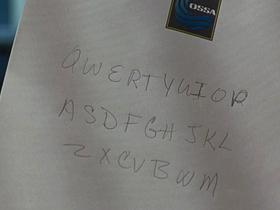 OSSA
QWERTYUIOP
ASDFGHJKL
ZXCVBWM